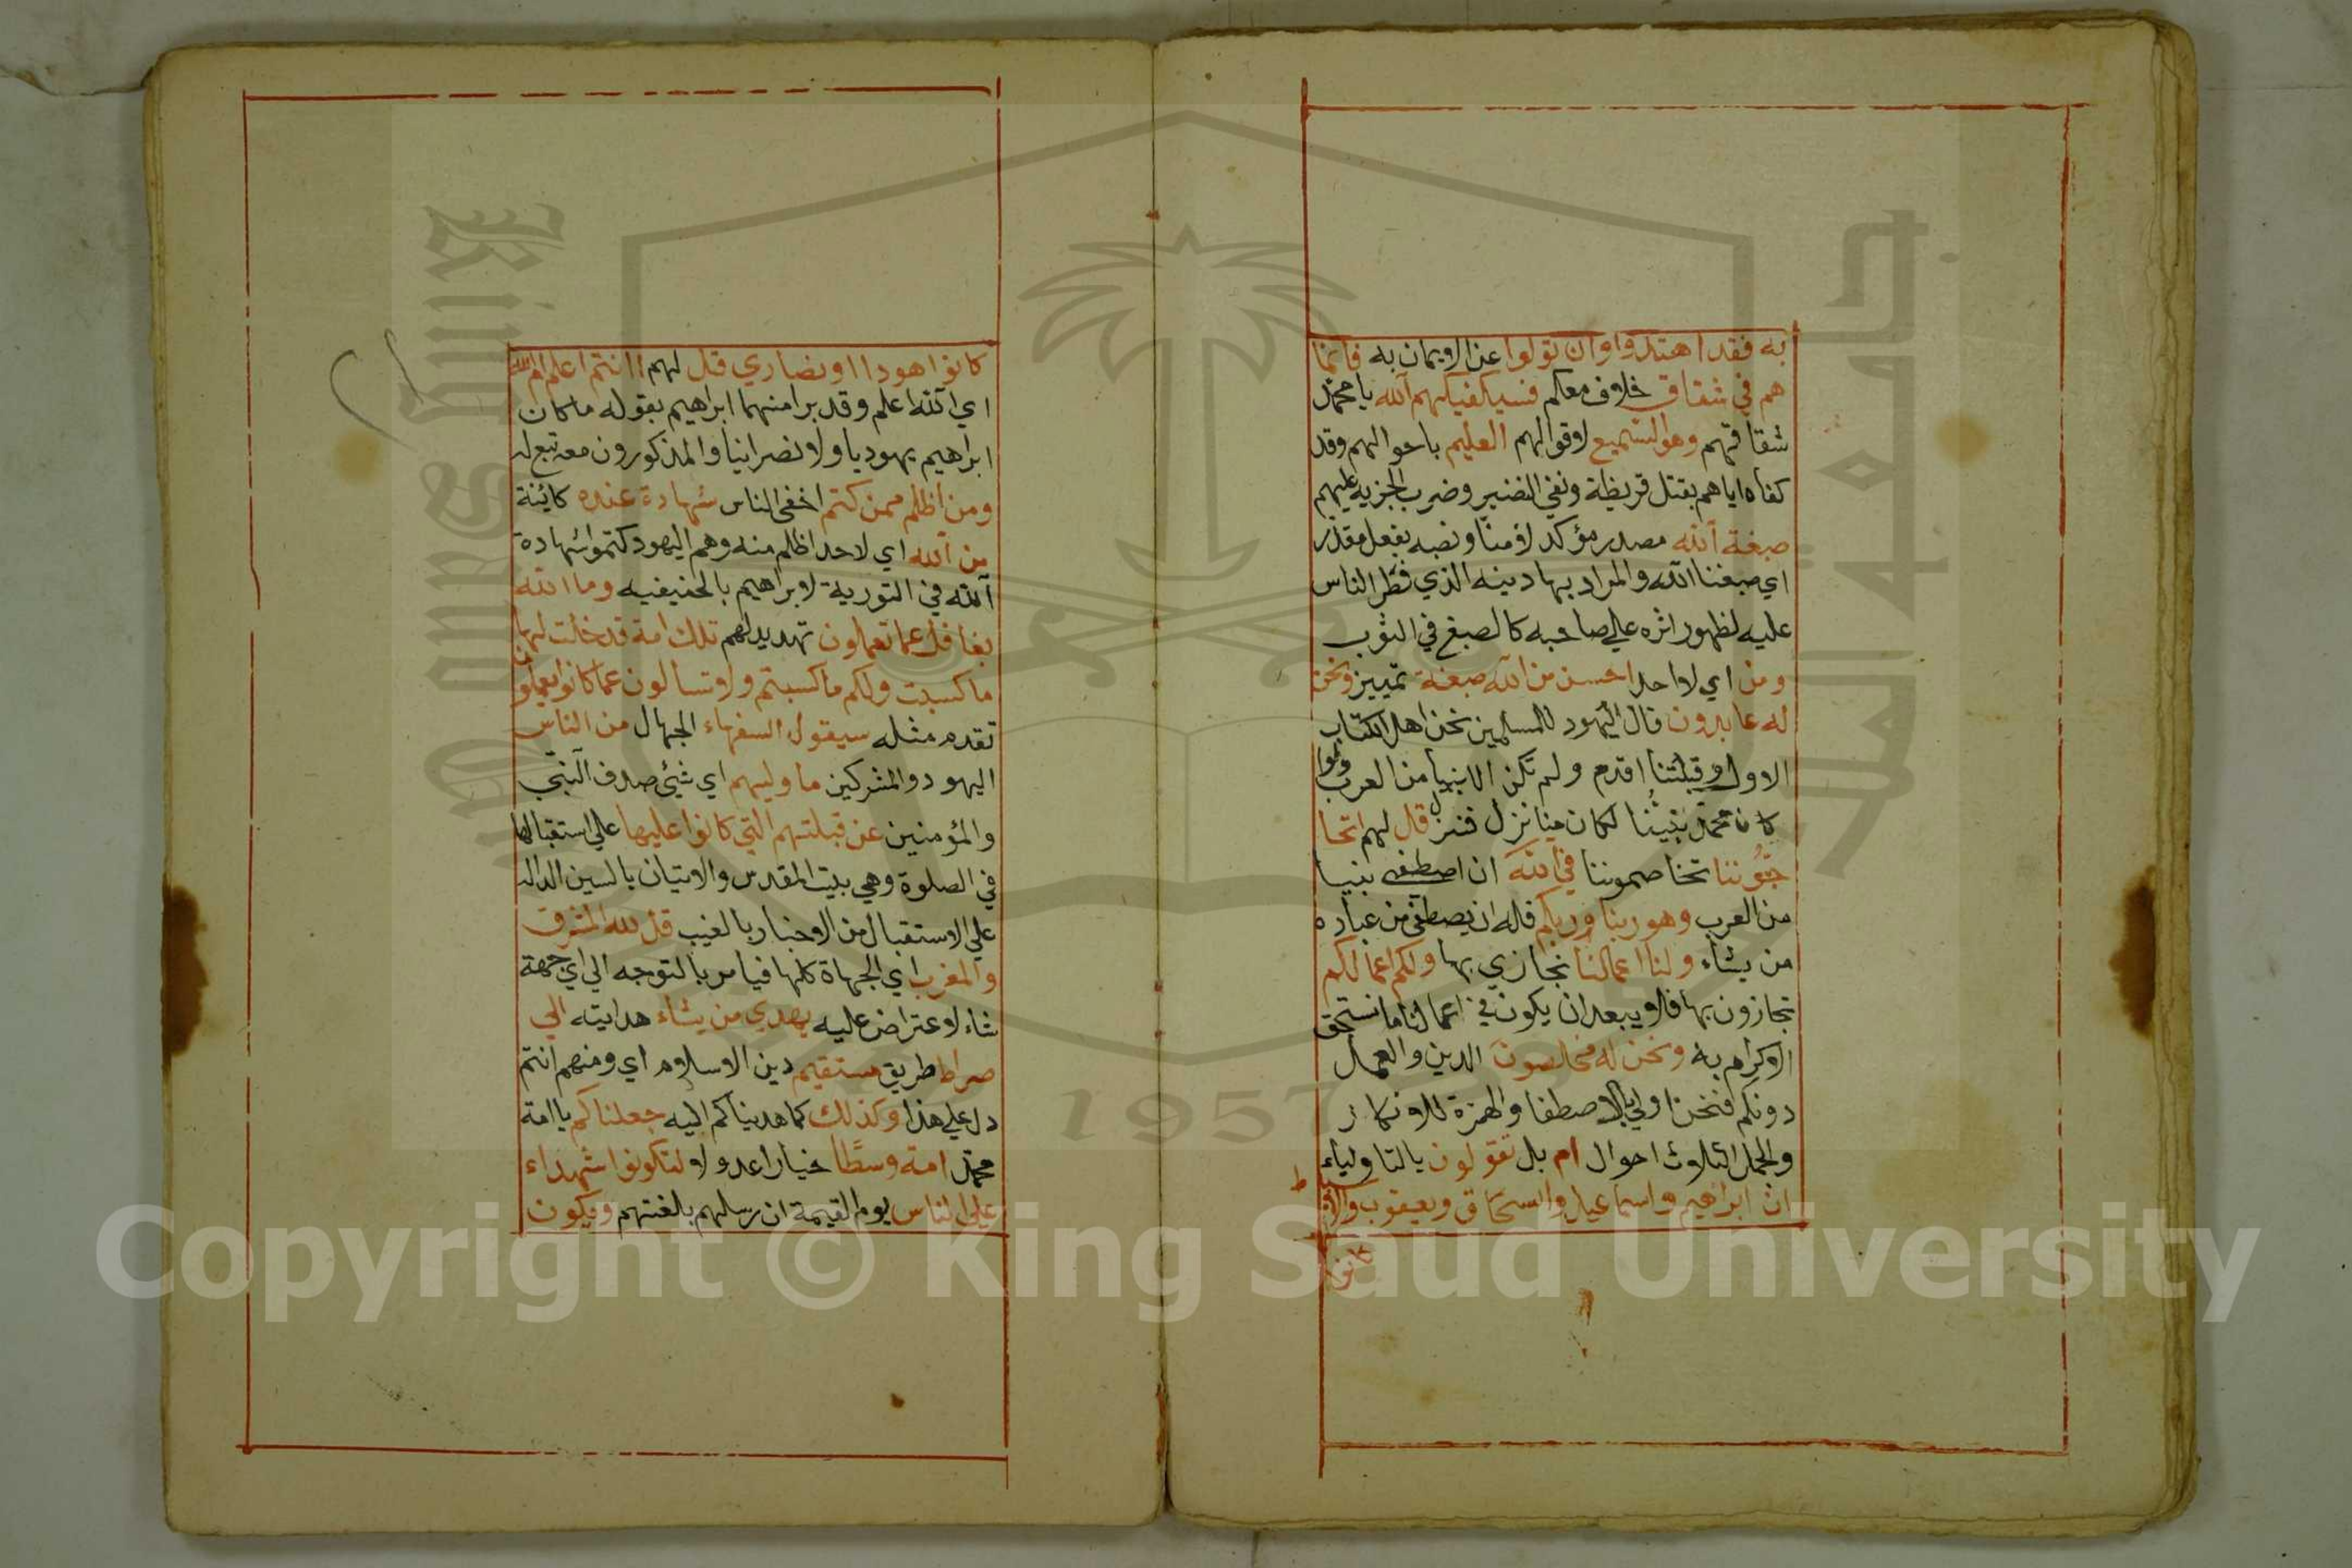 به فقد اهتدوا وان تولوا عن الايمان به فانما
هم في شقاق خلاف معكم فسيكفيكهم الله يا محمد
شقاقهم وهو السميع لاقوالهم العليم باحوالهم وقد
كفاه اياهم بقتل قريظة ونفي النضير وضرب الجزيه عليهم
صبغة الله مصدر مؤكد لامنا ونصبه بفعل مقدر
اي صبغنا الله والمراد بها دينه الذي فطر الناس
عليه لظهور اثره علي صاحبه كالصبغ في الثوب
ومن اي لا احد احسن من الله صبغة تمييز ونحن
له عابدون قال اليهود للمسلمين نحن اهل الكتاب
الاول وقبلتنا اقدم ولم تكن الانبيا من العرب ولو
كان محمد نبيا لكان منا نزل فنزل قل لهم اتحا
جوننا تخاصموننا في الله ان اصطفى نبيا
من العرب وهو ربنا وربكم فله ان يصطفي من عباده
من يشاء ولنا اعمالنا نجازي بها ولكم اعمالكم
تجازون بها فلا يبعد ان يكون في اعمالنا ما نستحق
الاكرام به ونحن له مخلصون الدين والعمل
دونكم فنحن اولي بالاصطفا والهمزة للانكار
والجمل الثلاث احوال ام بل تقولون بالتا والياء
ان ابراهيم واسماعيل واسحاق ويعقوب والا
كانوا هودا او نصاري قل لهم اانتم اعلم ام الله
اي الله اعلم وقد برا منهما ابراهيم بقوله ما كان
ابراهيم يهوديا ولا نصرانيا والمذكورون معه تبع له
ومن اظلم ممن كتم اخفي الناس شهادة عنده كائنة
من الله اي لا احد اظلم منه وهم اليهود كتموا شهادة
الله في التورية لابراهيم بالحنيفيه وما الله
بغافل عما تعملون تهديد لهم تلك امة قد خلت لها
ما كسبت ولكم ما كسبتم ولا تسالون عما كانوا يعملون
تقدم مثله سيقول السفهاء الجهال من الناس
اليهود والمشركين ما وليهم اي شيئ صرف النبي
والمؤمنين عن قبلتهم التي كانوا عليها علي استقبالها
في الصلوة وهي بيت المقدس والاتيان بالسين الدالة
علي الاستقبال من الاخبار بالغيب قل لله المشرق
والمغرب اي الجهاة كلها فيامر بالتوجه الي اي جهة
شاء لا اعتراض عليه يهدي من يشاء هدايته الي
صراط طريق مستقيم دين الاسلام اي ومنهم انتم
دل علي هذا وكذلك كما هديناكم اليه جعلناكم يا امة
محمد امة وسطا خيارا عدولا لتكونوا شهداء
علي الناس يوم القيمة ان رسلهم بلغتهم ويكون
جامعة الملك سعود
King Saud University
1957
Copyright © King Saud University